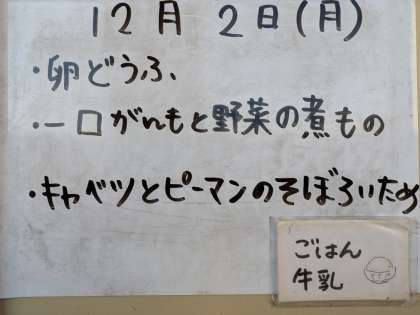 12月 2日(月)
・卵どうふ、
・一口がんもと野菜の煮もの
・キャベツとピーマンのそぼろいため
ごはん
牛乳